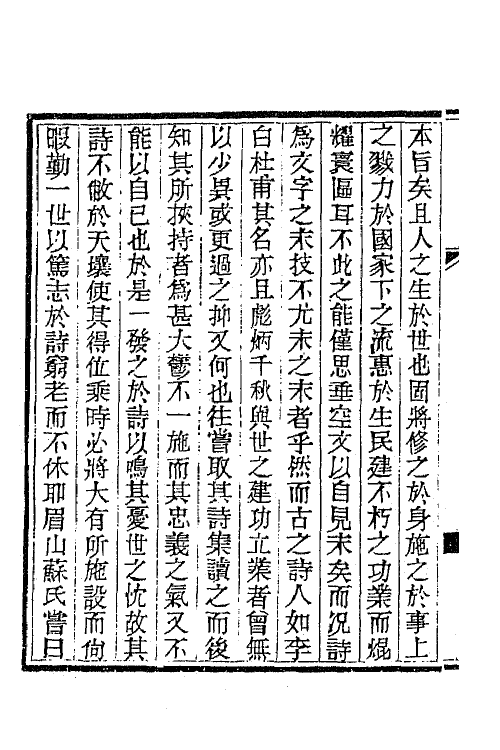 本旨矣且人之生於世也固將修之於身施之於事上
之戮力於國家下之流惠於生民建不朽之功業而焜
耀寰區耳不此之能僅思垂空文以自見末矣而况詩
爲文字之末技不尤末之末者乎然而古之詩人如李
白杜甫其名亦且彪炳千秋與世之建功立業者曾無
以少異或更過之抑又何也往嘗取其詩集讀之而後
知其所挾持者爲甚大鬱不一施而其忠義之氣又不
能以自已也於是一發之於詩以鳴其憂世之忱故其
詩不敝於天壤使其得位乘時必將大有所施設而尙
暇勤一世以篤志於詩窮老而不休耶眉山蘇氏嘗曰